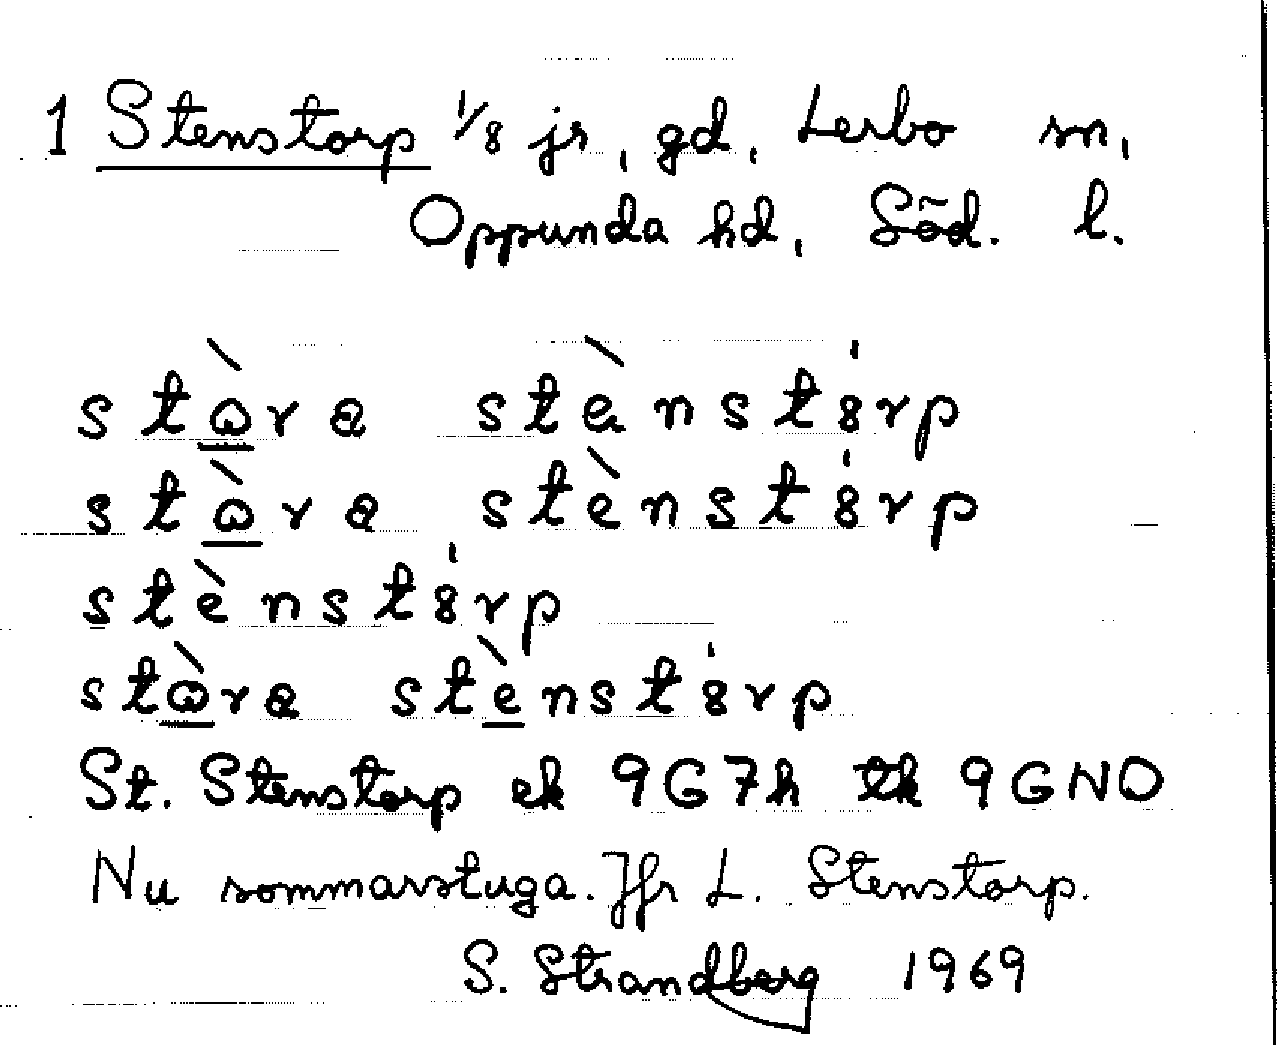 1 Stenstorp 1/8 jr, gd, Lerbo sn,
Oppunda hd, Söd. l.
stɷ̀ra stènstȯ́rp
stɷ̀ra stènst8́rp
stènst8́rp
stɷ̀ra stènst8́rp
St. Stenstorp ek 9G7h tk 9GNO
Nu sommarstuga. Jfr L. Stenstorp.
S. Strandberg 1969